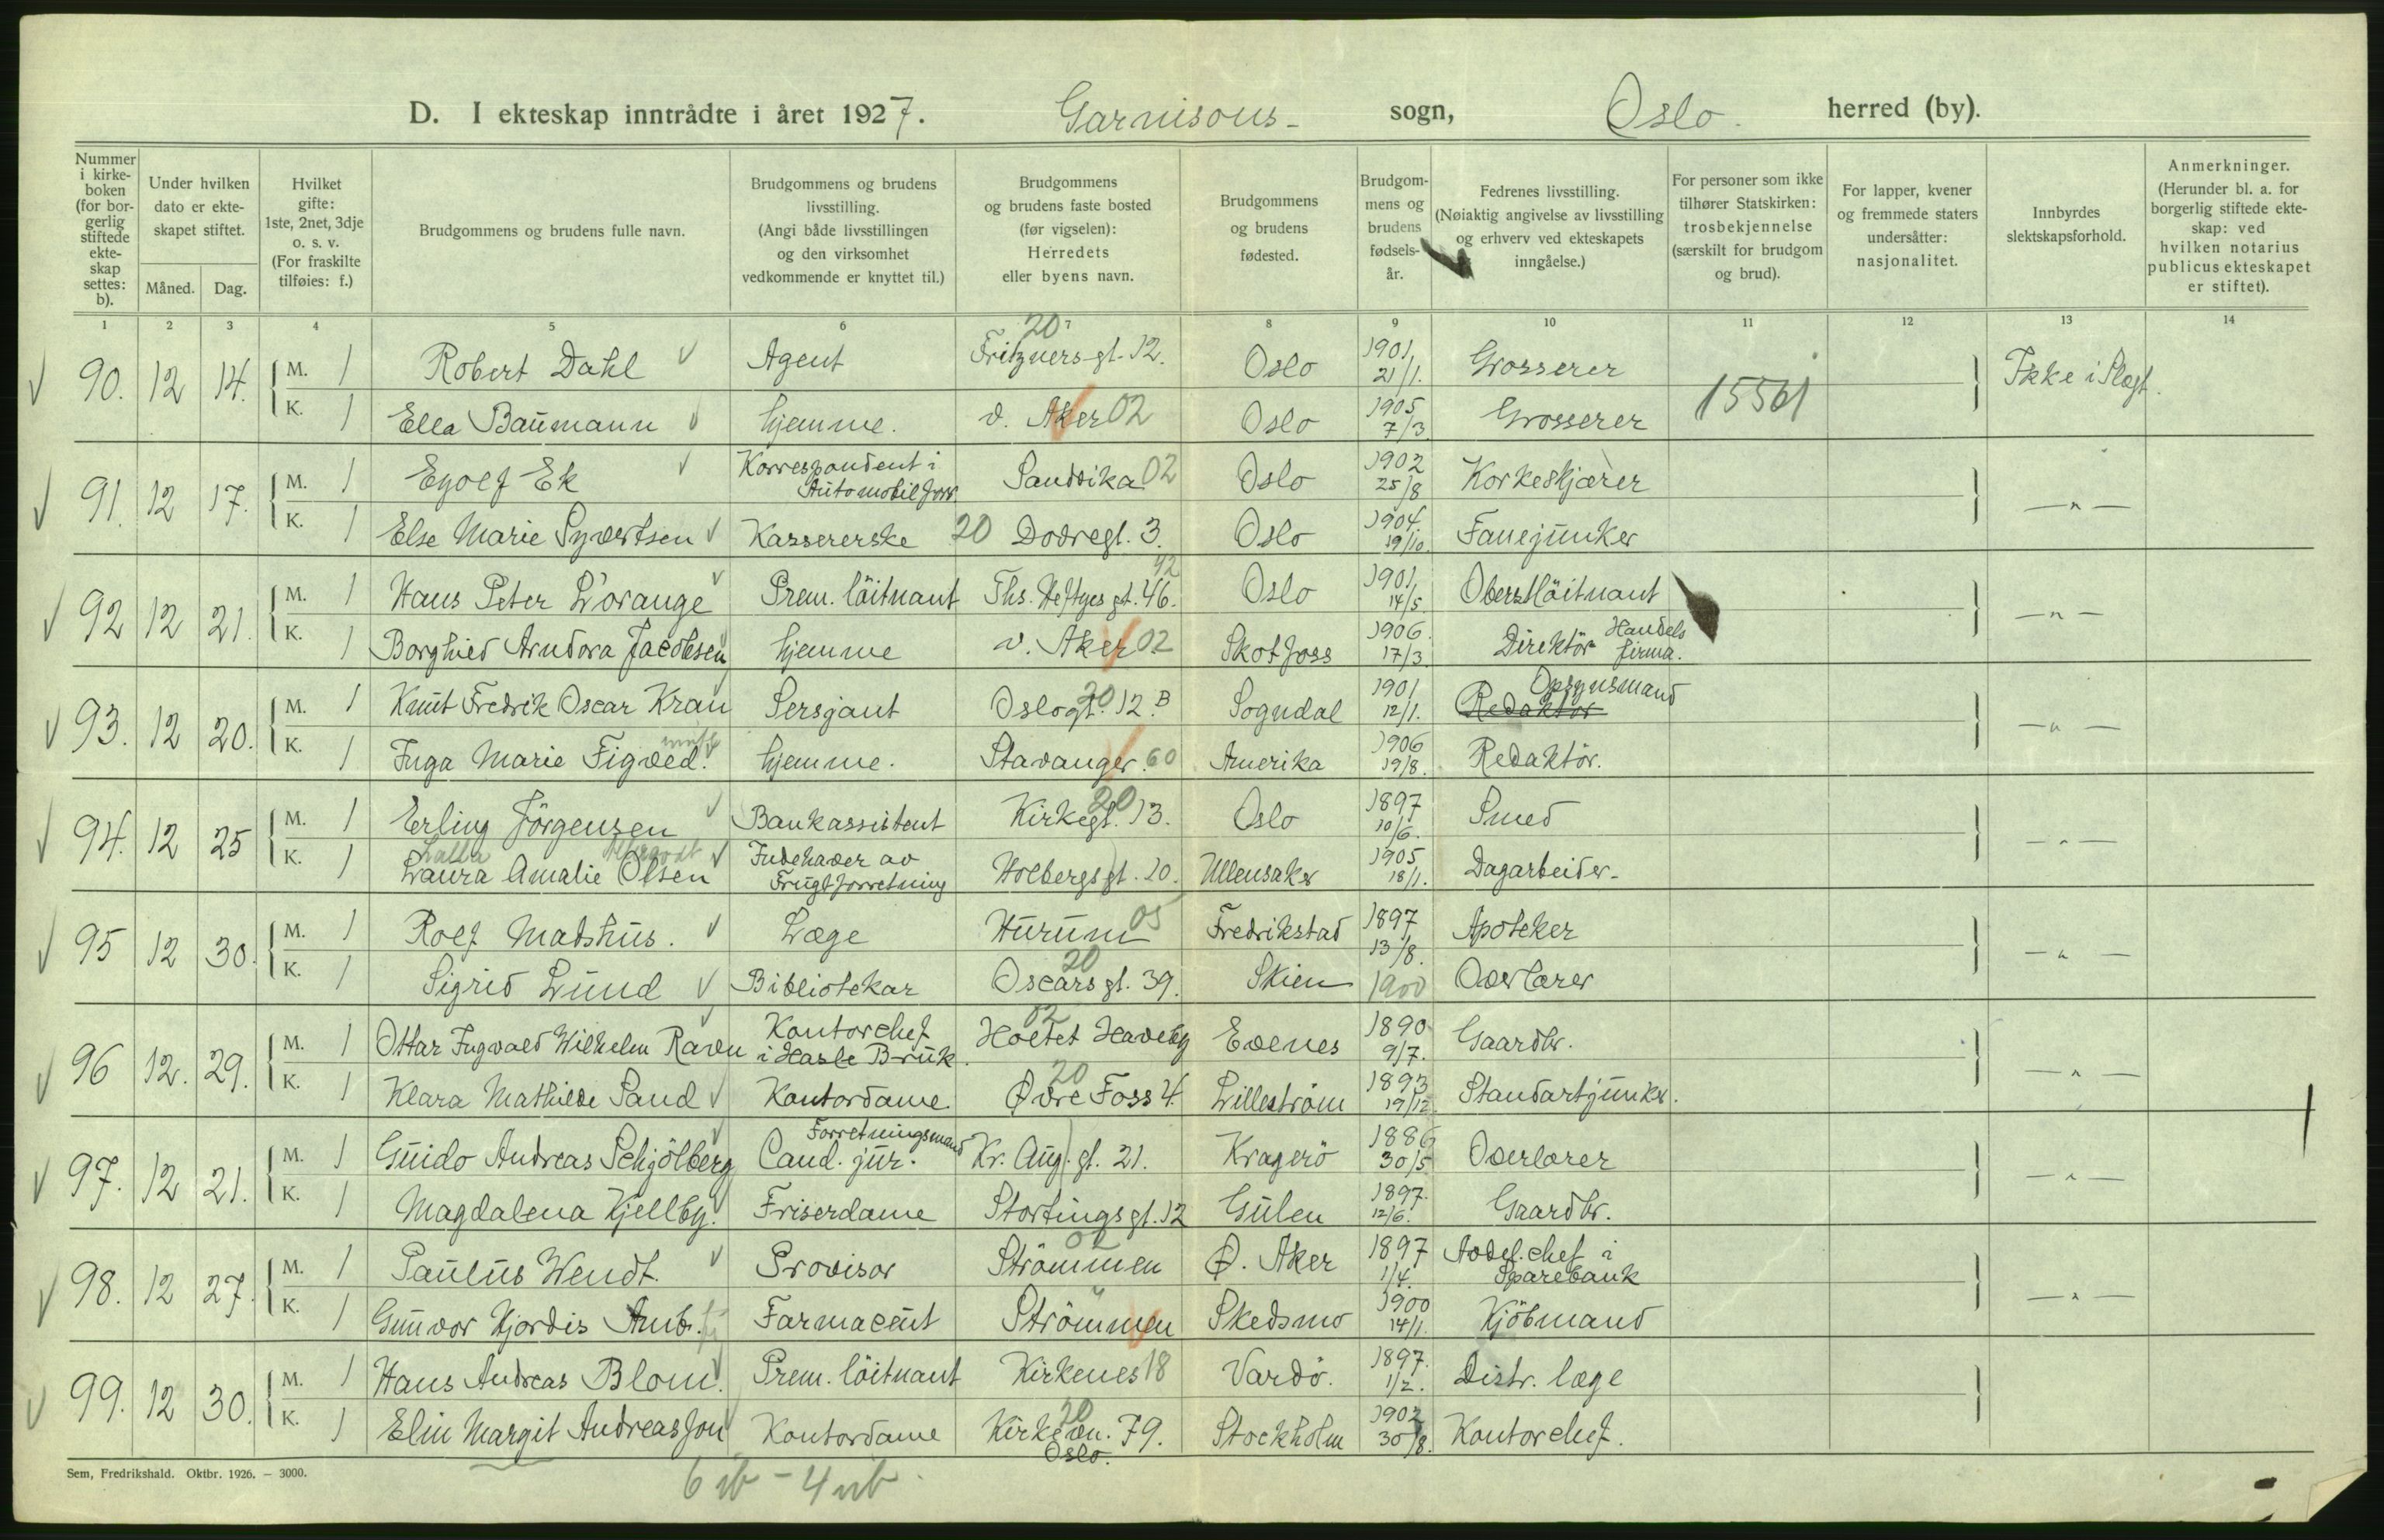 D. I ekteskap inntrådte i året 1927. Garnisons- sogn, Oslo. herred (by).
Nummer i kirke-boken (for bor-gerlig stiftede ekte-skap settes: b).
Under hvilken dato er ekte-skapet stiftet.
Måned. Dag.
Hvilket gifte: 1ste, 2net, 3dje o. s. v. (For fraskilte tilføies: f.)
Brudgommens og brudens fulle navn.
Brudgommens og brudens livsstilling. (Angi både livsstillingen og den virksomhet vedkommende er knyttet til.)
Brudgommens og brudens faste bosted (før vigselen): Herredets eller byens navn.
Brudgommens og brudens fødested.
Brudgom-mens og brudens fødsels-år.
Fedrenes livsstilling. (Nøiaktig angivelse av livsstilling og erhverv ved ekteskapets inngåelse.)
For personer som ikke tilhører Statskirken: trosbekjennelse (særskilt for brudgom og brud).
For lapper, kvener og fremmede staters undersåtter: nasjonalitet.
Innbyrdes slektskapsforhold.
Anmerkninger. (Herunder bl. a. for borgerlig stiftede ekte-skap: ved hvilken notarius publicus ekteskapet er stiftet).
1 2 3 4 5 6 7 8 9 10 11 12 13 14
90. 12 14. M. 1 Robert Dahl Agent 20 Fritznersgt. 12. Oslo 1901 21/1. Grosserer 15561 Ikke i Slegt.
K. 1 Ella Baumann hjemme. v. Aker 02 Oslo 1905 7/3 Grosserer
91. 12 17. M. 1 Eyolf Ek Korrespondent i Automobilforr. Sandvika 02 Oslo 1902 25/8 Korkeskjærer — " —
K. 1 Else Marie Syvertsen Kassererske 20 Dovregt. 3. Oslo 1904. 19/10. Fanejunker
92 12 21. M. 1 Hans Peter L'orange Prem. löitnant Ths. Heftyes gt. 46. Oslo 1901 14/5. Oberstlöitnant — " —
K. 1 Borghild Arndora Jacobsen hjemme v. Aker 02 Skotfoss 1906. 17/3. Direktör Handels firma.
93. 12 20. M. 1 Knut Fredrik Oscar Kran Sersjant Oslogt. 20 12 B Sogndal 1901 12/1. Redaktör Opsynsmand — " —
K. 1 Inga Marie Figved. hjemme. Stavanger. 60 Amerika 1906 19/8. Redaktör.
94. 12 25 M. 1 Erling Jörgensen Bankassistent Kirkegt. 20 13. Oslo 1897 10/6. Smed — " —
K. 1 Laura Amalie Olsen Indehaver av Frugtforretning Holbergs gt. 20. Ullensaker 1905 18/1. Dagarbeider.
95 12 30. M. 1 Rolf Madshus. Læge Hurum 05 Fredrikstad 1897 13/8. Apoteker — " —
K. 1 Sigrid Lund Bibliotekar 20 Oscars gt. 39. Skien 1900 Overlærer
96 12. 29. M. 1 Ottar Ingvald Wilhelm Ravn Kontorchef i Hasle Bruk. 02 Holtet Haveby Evenes 1890 9/7. Gaardbr. — " —
K. 1 Klara Mathilde Sand Kontordame 20 Øvre Foss 4. Lilleström 1893 19/12. Standartjunker.
97. 12 21. M. 1 Guido Andreas Schjölberg Cand. jur. Forretningsmand Kr. Aug. gt. 21. Kragerö 1886 30/5 Overlærer — " —
K. 1 Magdalena Kjellby. Friserdame Stortings gt. 12 Gulen 1897. 12/6. Gaardbr.
98. 12 27. M. 1 Paulus Wendt. Provisor 02 Strömmen Ø. Aker 1897 1/4. Avdel. chef i Sparebank — " —
K. 1 Gunvor Hjördis Farmaceut Strömmen Skedsmo 1900 14/1. Kjöbmand
99. 12 30. M. 1 Hans Andreas Blom. Prem. löitnant Kirkenes 18 Vardö. 1897. 1/2. Distr. læge
K. 1 Elin Margit Andreasson Kontordame 20 Kirkevn. 79. Oslo. Stockholm 1902 30/8. Kontorchef.
Sem, Fredrikshald. Oktbr. 1926. – 3000.